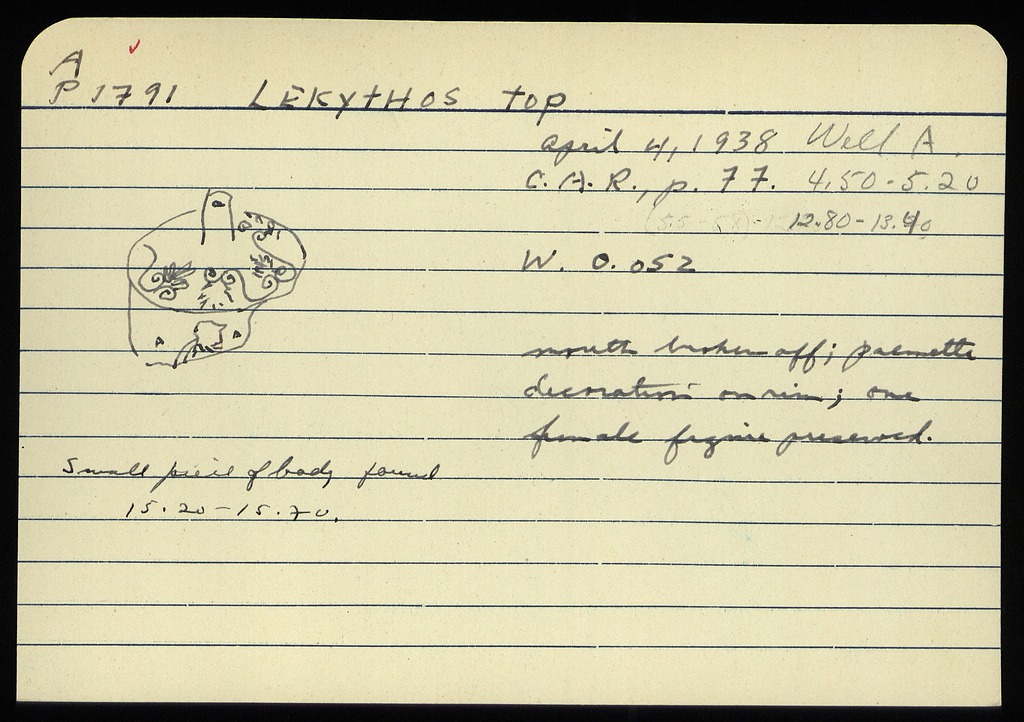 A
P 1791 LEKYTHOS top
April 4, 1938 Well A.
C.A.R., p. 77. 4.50-5.20
(55-58)- 12.80-13.40
W. 0.052
mouth broken off; palmette
decoration on rim; one
female figure preserved.
Small piece of body found
15.20-15.70.